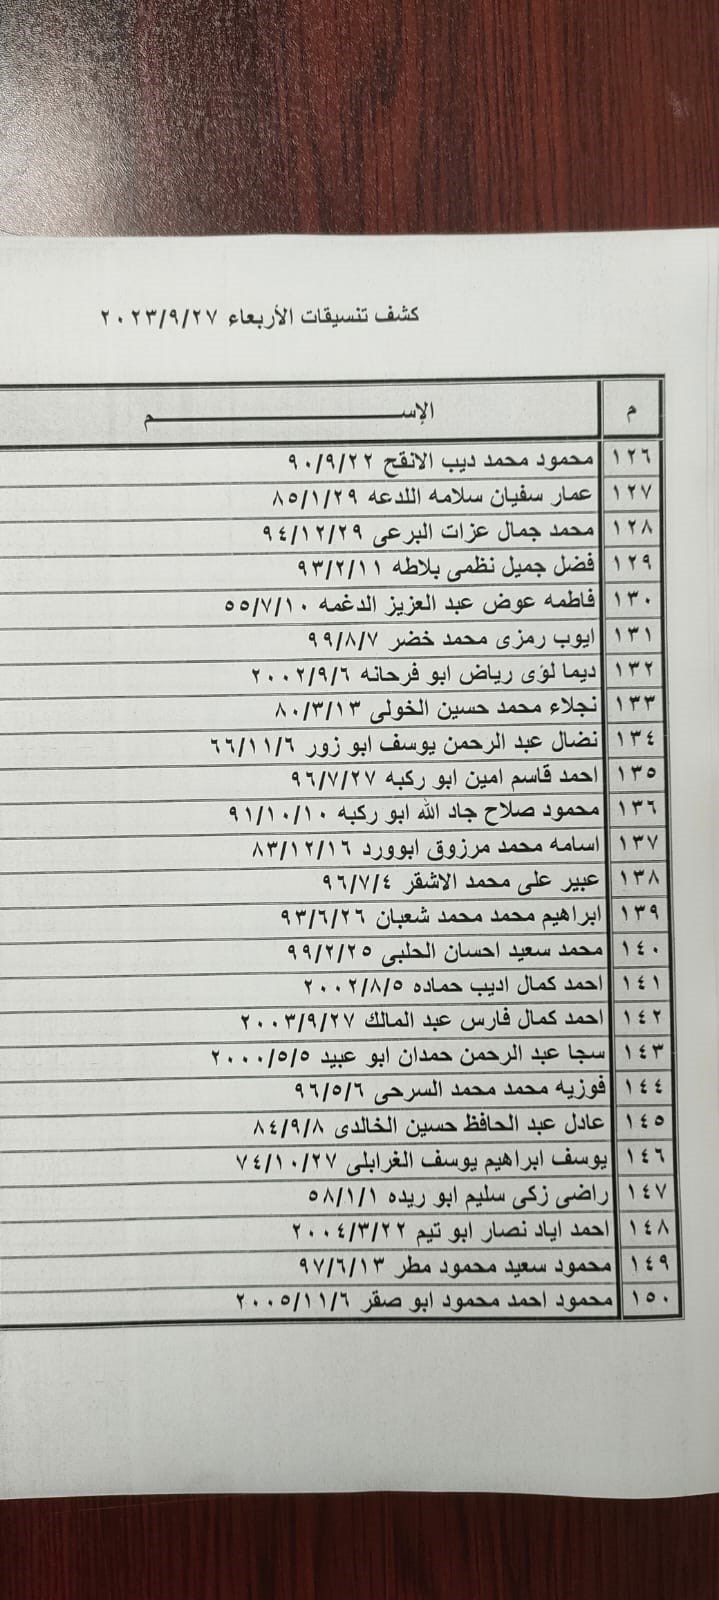 كشف تنسيقات الأربعاء ٢٠٢٣/٩/٢٧
م الإســـــم
١٢٦ محمود محمد ديب الانقح ٩٠/٩/٢٢
١٢٧ عمار سفيان سلامه اللدعه ٨٥/١/٢٩
١٢٨ محمد جمال عزات البرعى ٩٤/١٢/٢٩
١٢٩ فضل جميل نظمى بلاطه ٩٣/٢/١١
١٣٠ فاطمه عوض عبد العزيز الدغمه ٥٥/٧/١٠
١٣١ ايوب رمزى محمد خضر ٩٩/٨/٧
١٣٢ ديما لؤى رياض ابو فرحانه ٢٠٠٢/٩/٦
١٣٣ نجلاء محمد حسين الخولى ٨٠/٣/١٣
١٣٤ نضال عبد الرحمن يوسف ابو زور ٦٦/١١/٦
١٣٥ احمد قاسم امين ابو ركبه ٩٦/٧/٢٧
١٣٦ محمود صلاح جاد الله ابو ركبه ٩١/١٠/١٠
١٣٧ اسامه محمد مرزوق ابوورد ٨٣/١٢/١٦
١٣٨ عبير على محمد الاشقر ٩٦/٧/٤
١٣٩ ابراهيم محمد محمد شعبان ٩٣/٦/٢٦
١٤٠ محمد سعيد احسان الحلبى ٩٩/٢/٢٥
١٤١ احمد كمال اديب حماده ٢٠٠٢/٨/٥
١٤٢ احمد كمال فارس عبد المالك ٢٠٠٣/٩/٢٧
١٤٣ سجا عبد الرحمن حمدان ابو عبيد ٢٠٠٠/٥/٥
١٤٤ فوزيه محمد محمد السرحى ٩٦/٥/٦
١٤٥ عادل عبد الحافظ حسين الخالدى ٨٤/٩/٨
١٤٦ يوسف ابراهيم يوسف الغرابلى ٧٤/١٠/٢٧
١٤٧ راضى زكى سليم ابو ريده ٥٨/١/١
١٤٨ احمد اياد نصار ابو تيم ٢٠٠٤/٣/٢٢
١٤٩ محمود سعيد محمود مطر ٩٧/٦/١٣
١٥٠ محمود احمد محمود ابو صقر ٢٠٠٥/١١/٦